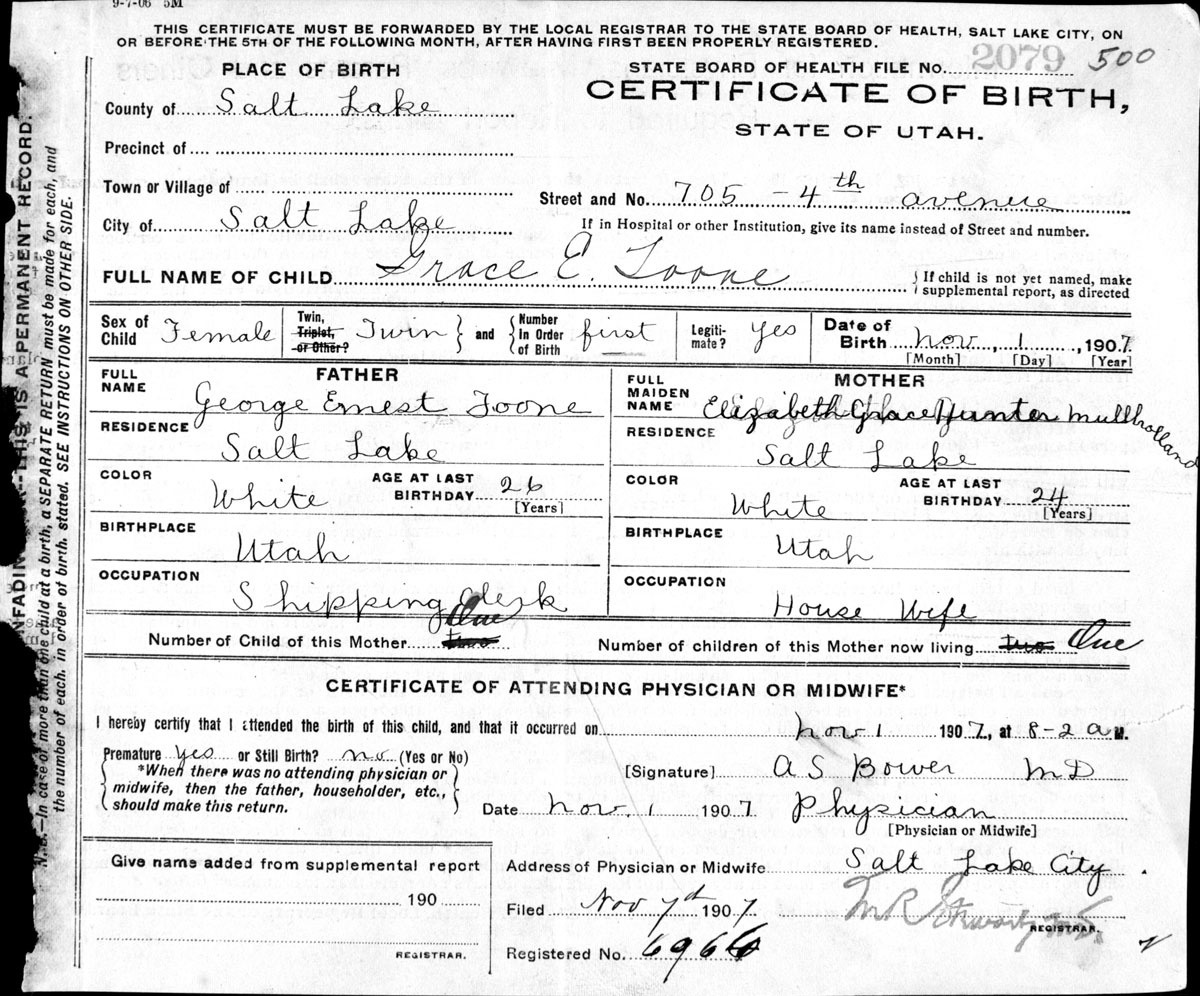 9-7-06 5M
THIS CERTIFICATE MUST BE FORWARDED BY THE LOCAL REGISTRAR TO THE STATE BOARD OF HEALTH, SALT LAKE CITY, ON
OR BEFORE THE 5TH OF THE FOLLOWING MONTH, AFTER HAVING FIRST BEEN PROPERLY REGISTERED.
PLACE OF BIRTH
STATE BOARD OF HEALTH FILE NO. 2079 500
County of Salt Lake
CERTIFICATE OF BIRTH,
STATE OF UTAH.
Precinct of
Town or Village of
Street and No. 705 - 4th avenue
City of Salt Lake
If in Hospital or other Institution, give its name instead of Street and number.
FULL NAME OF CHILD Grace E. Toone
If child is not yet named, make
supplemental report, as directed
Sex of Child Female Twin, Triplet, or Other? Twin and Number In Order of Birth first Legiti-mate? Yes Date of Birth Nov, 1, 1907
[Month] [Day] [Year]
FATHER
FULL NAME George Ernest Toone
RESIDENCE Salt Lake
COLOR White AGE AT LAST BIRTHDAY 26
[Years]
BIRTHPLACE Utah
OCCUPATION Shipping Clerk
MOTHER
FULL MAIDEN NAME Elizabeth Grace Hunter Mullholland
RESIDENCE Salt Lake
COLOR White AGE AT LAST BIRTHDAY 24
[Years]
BIRTHPLACE Utah
OCCUPATION House Wife
Number of Child of this Mother two One
Number of children of this Mother now living two One
CERTIFICATE OF ATTENDING PHYSICIAN OR MIDWIFE*
I hereby certify that I attended the birth of this child, and that it occurred on Nov 1 1907, at 8-2 a M.
Premature Yes or Still Birth? no (Yes or No)
*When there was no attending physician or
midwife, then the father, householder, etc.,
should make this return.
[Signature] A S Bower MD
Date Nov. 1 1907 Physician
[Physician or Midwife]
Give name added from supplemental report
190
REGISTRAR.
Address of Physician or Midwife Salt Lake City.
Filed Nov 7th 1907
REGISTRAR.
Registered No. 6966
UNFADING THIS IS A PERMANENT RECORD.
N. B.—In case of more than one child at a birth, a SEPARATE RETURN must be made for each, and
the number of each, in order of birth, stated. SEE INSTRUCTIONS ON OTHER SIDE.